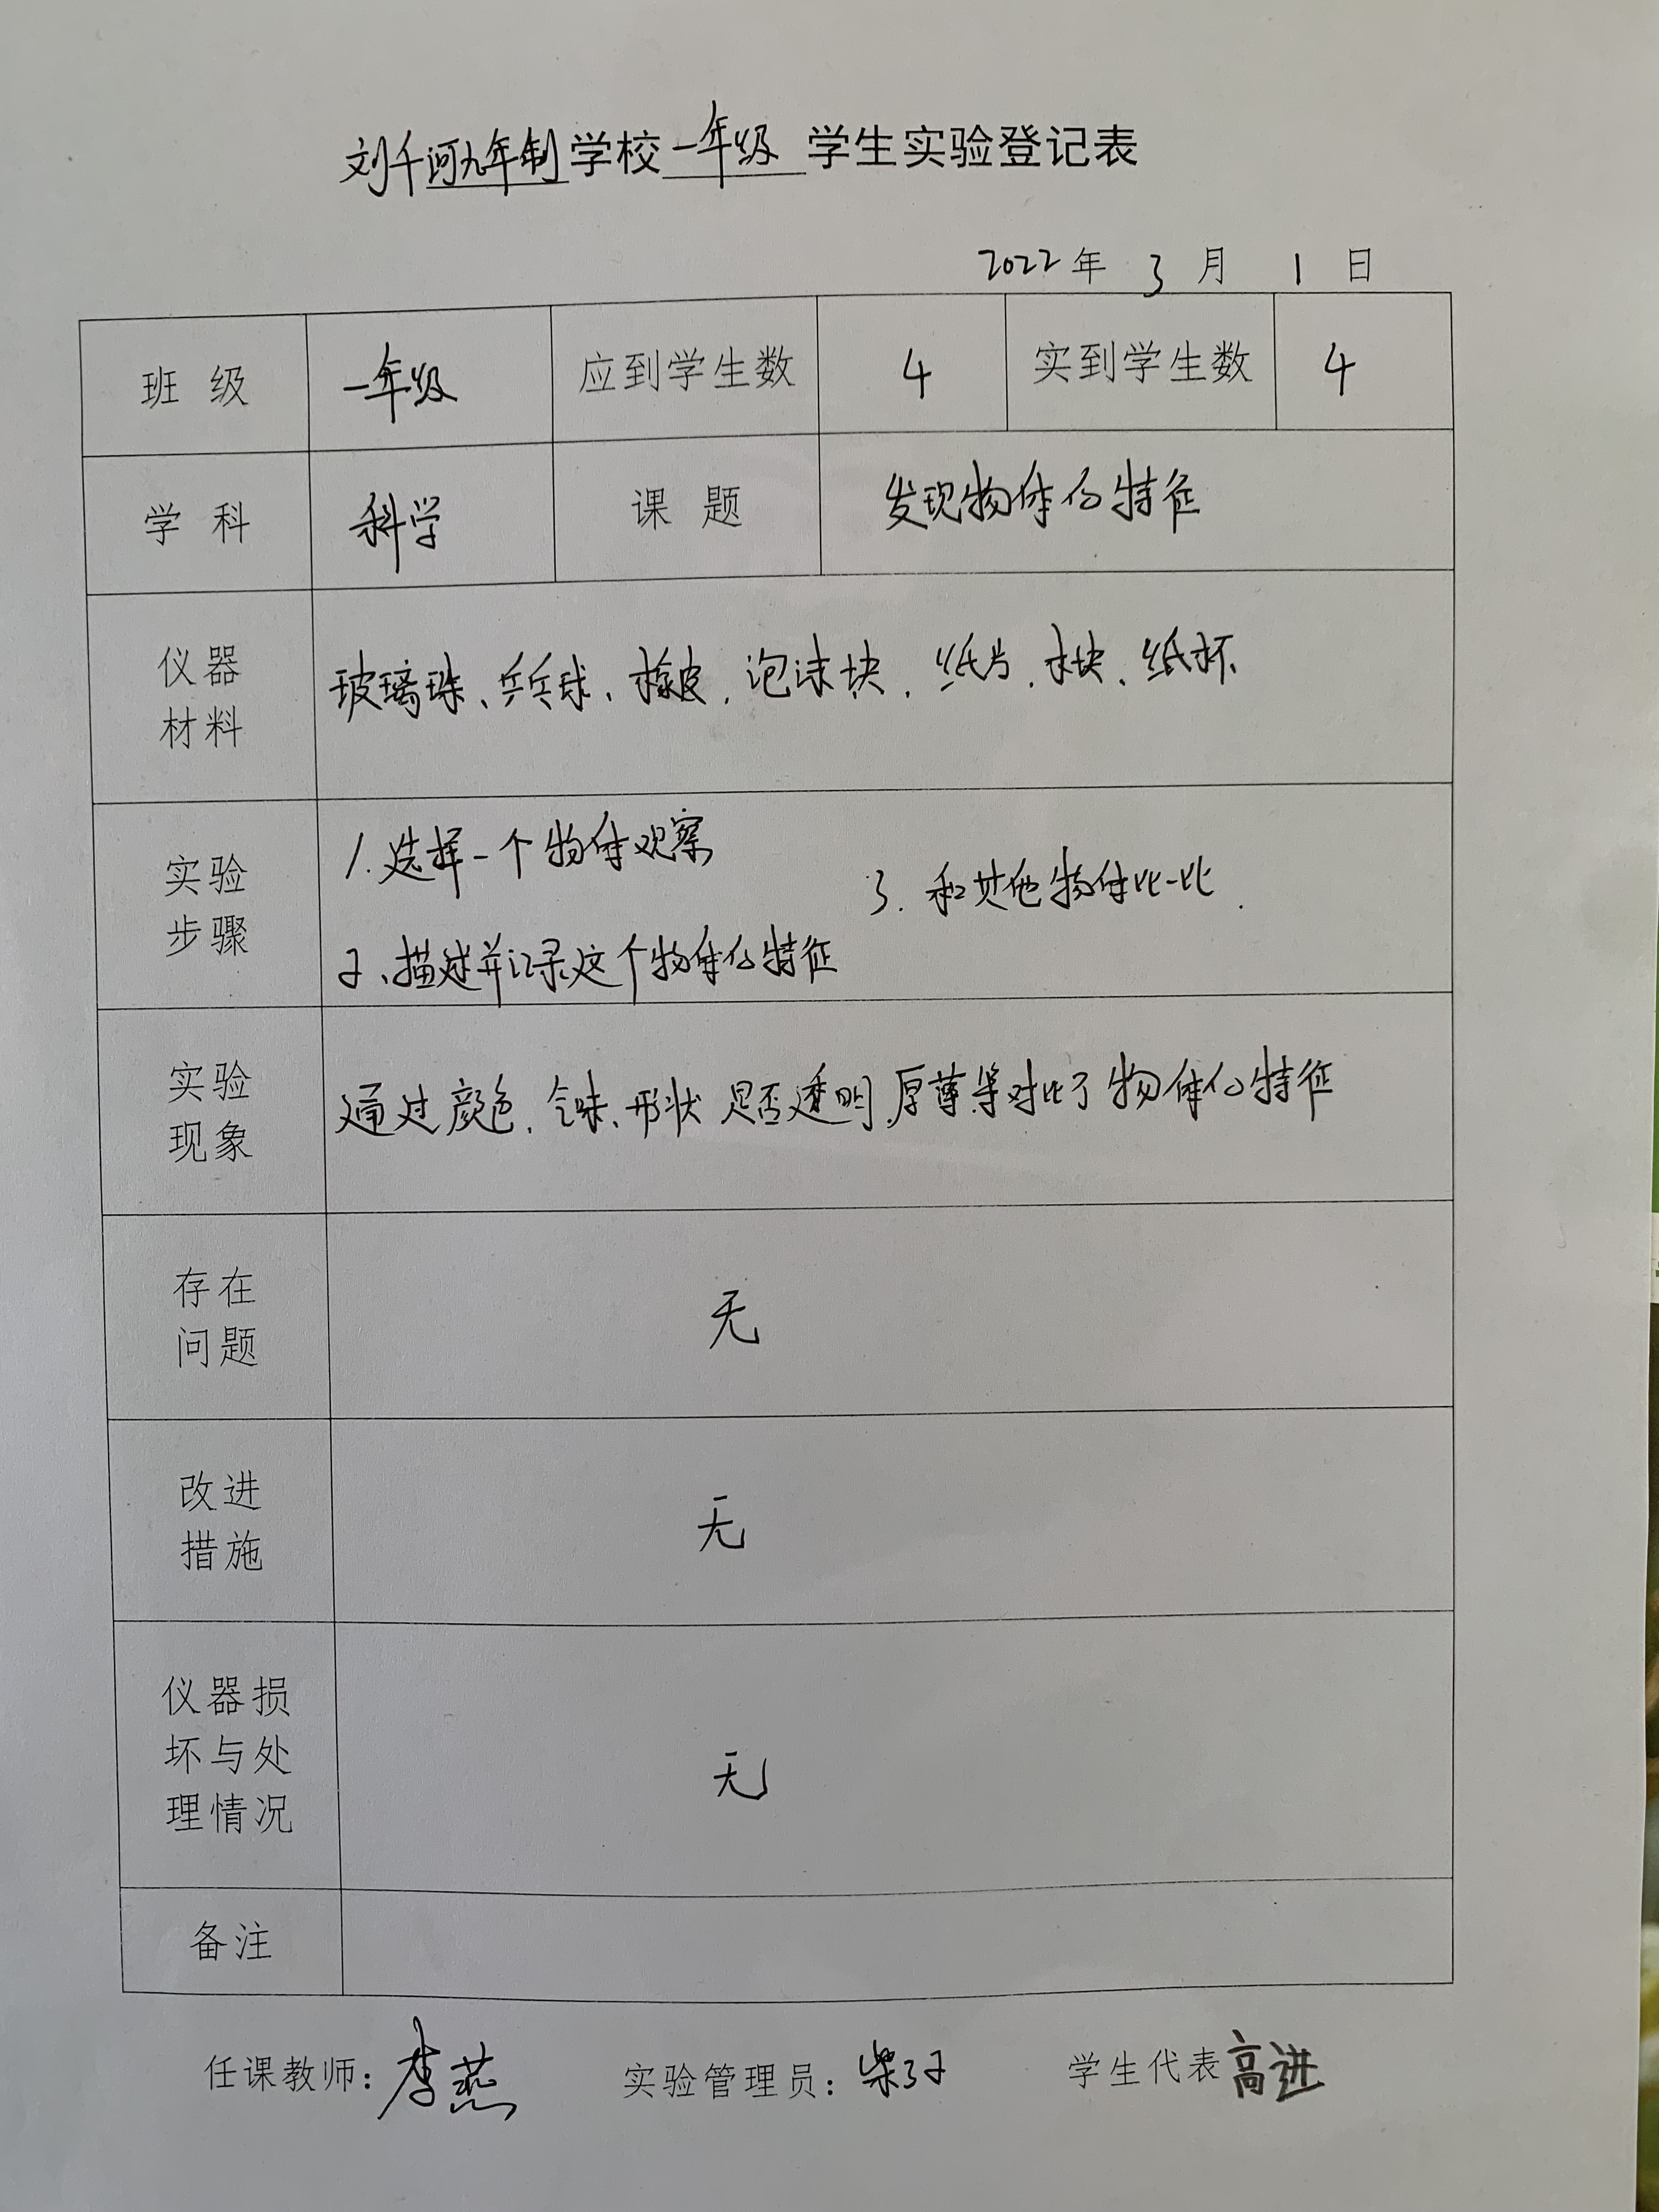 刘千河九年制学校一年级学生实验登记表
2022年 3月 1日
班 级 一年级 应到学生数 4 实到学生数 4
学 科 科学 课 题 发现物体的特征
仪器
材料
玻璃珠、乒乓球、橡皮、泡沫块、纸片、木块、纸杯
实验
步骤
1.选择一个物体观察
2、描述并记录这个物体的特征
3.和其他物体比一比.
实验
现象
通过颜色、气味、形状 是否透明、厚薄等对比了物体的特征
存在
问题
无
改进
措施
无
仪器损
坏与处
理情况
无
备注
任课教师：李燕 实验管理员：柴 学生代表 高进